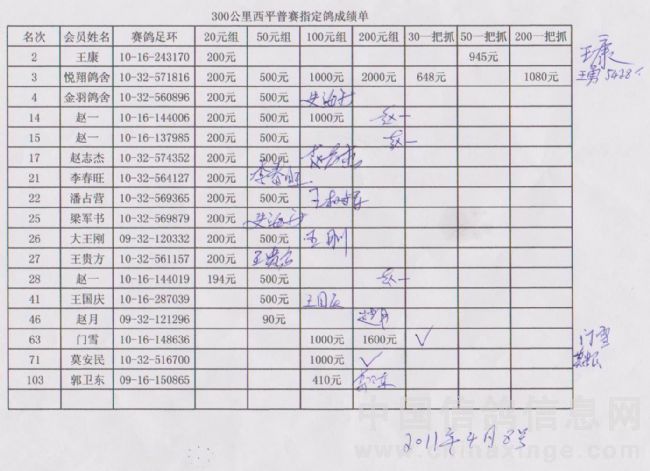 300公里西平普赛指定鸽成绩单
名次 会员姓名 赛鸽足环 20元组 50元组 100元组 200元组 30一把抓 50一把抓 200一把抓
2 王康 10-16-243170 200元 945元 王康
3 悦翔鸽舍 10-32-571816 200元 500元 1000元 2000元 648元 1080元 王勇
4 金羽鸽舍 10-32-560896 200元 500元
14 赵一 10-16-144006 200元 500元 1000元 赵一
15 赵一 10-16-137985 200元 500元 赵一
17 赵志杰 10-32-574352 200元 500元 赵志杰
21 李春旺 10-32-564127 200元 李春旺
22 潘占营 10-32-569365 200元 500元
25 梁军书 10-32-569879 200元
26 大王刚 09-32-120332 200元 500元 王刚
27 王贵方 10-32-561157 200元 王贵方
28 赵一 10-16-144019 194元 500元 赵一
41 王国庆 10-16-287039 500元 王国庆
46 赵月 09-32-121296 90元 赵月
63 门雪 10-16-148636 1000元 1600元 ✓ 门雪
71 莫安民 10-32-516700 1000元 ✓
103 郭卫东 09-16-150865 410元
2011年4月8号
中国信鸽信息网
www.chinaxinge.com